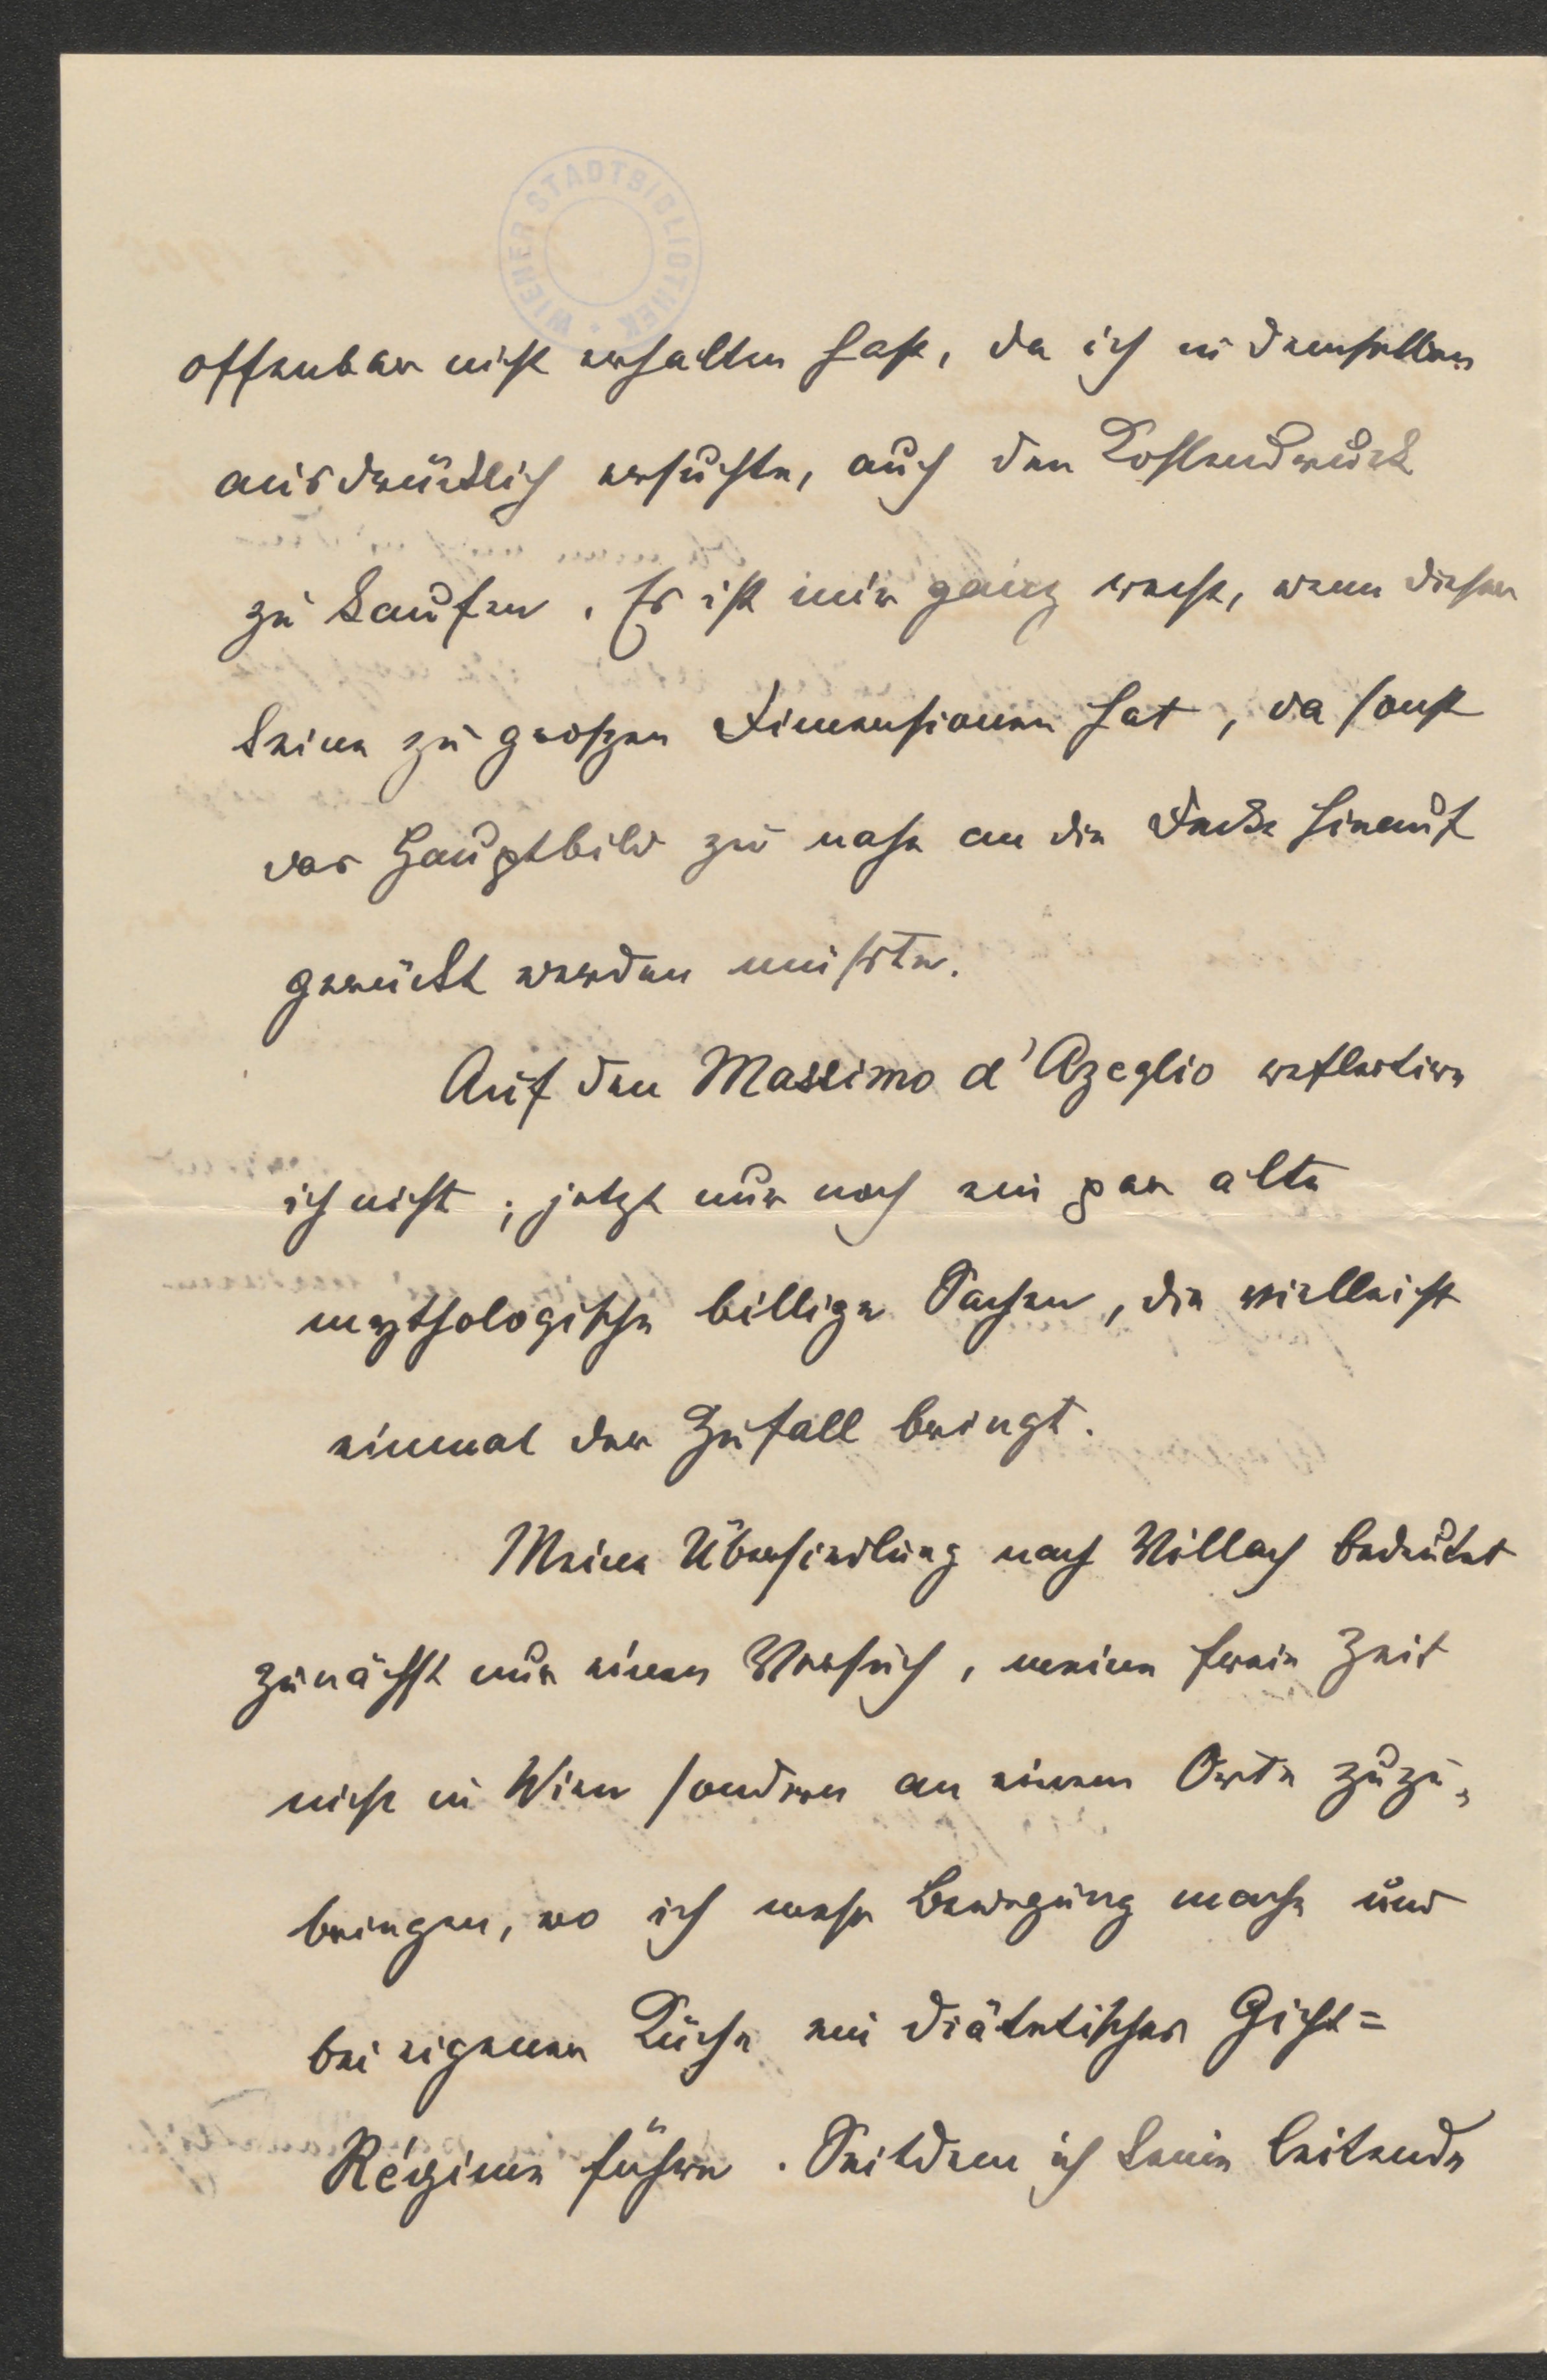 WIENER STADTBIBLIOTHEK
offenbar nicht erhalten hast, da ich in demselben
ausdrücklich ersuchte, auch den Kohlendruck
zu kaufen. Es ist mir ganz recht, wenn dieser
keine zu großen Dimensionen hat, da sonst
das Hauptbild zu nahe an die Decke hinauf
gerückt werden müsste.
Auf den Massimo d'Azeglio reflectire
ich nicht; jetzt nur noch ein par alte
mythologische billige Sachen, die vielleicht
einmal der Zufall bringt.
Meine Übersiedlung nach Villach bedeutet
zunächst nur einen Versuch, meine freie Zeit
nicht in Wien sondern an einem Orte zuzu-
bringen, wo ich mehr Bewegung mache und
bei eigener Küche ein diätetisches Gicht=
Régime führe. Seitdem ich keine leitende